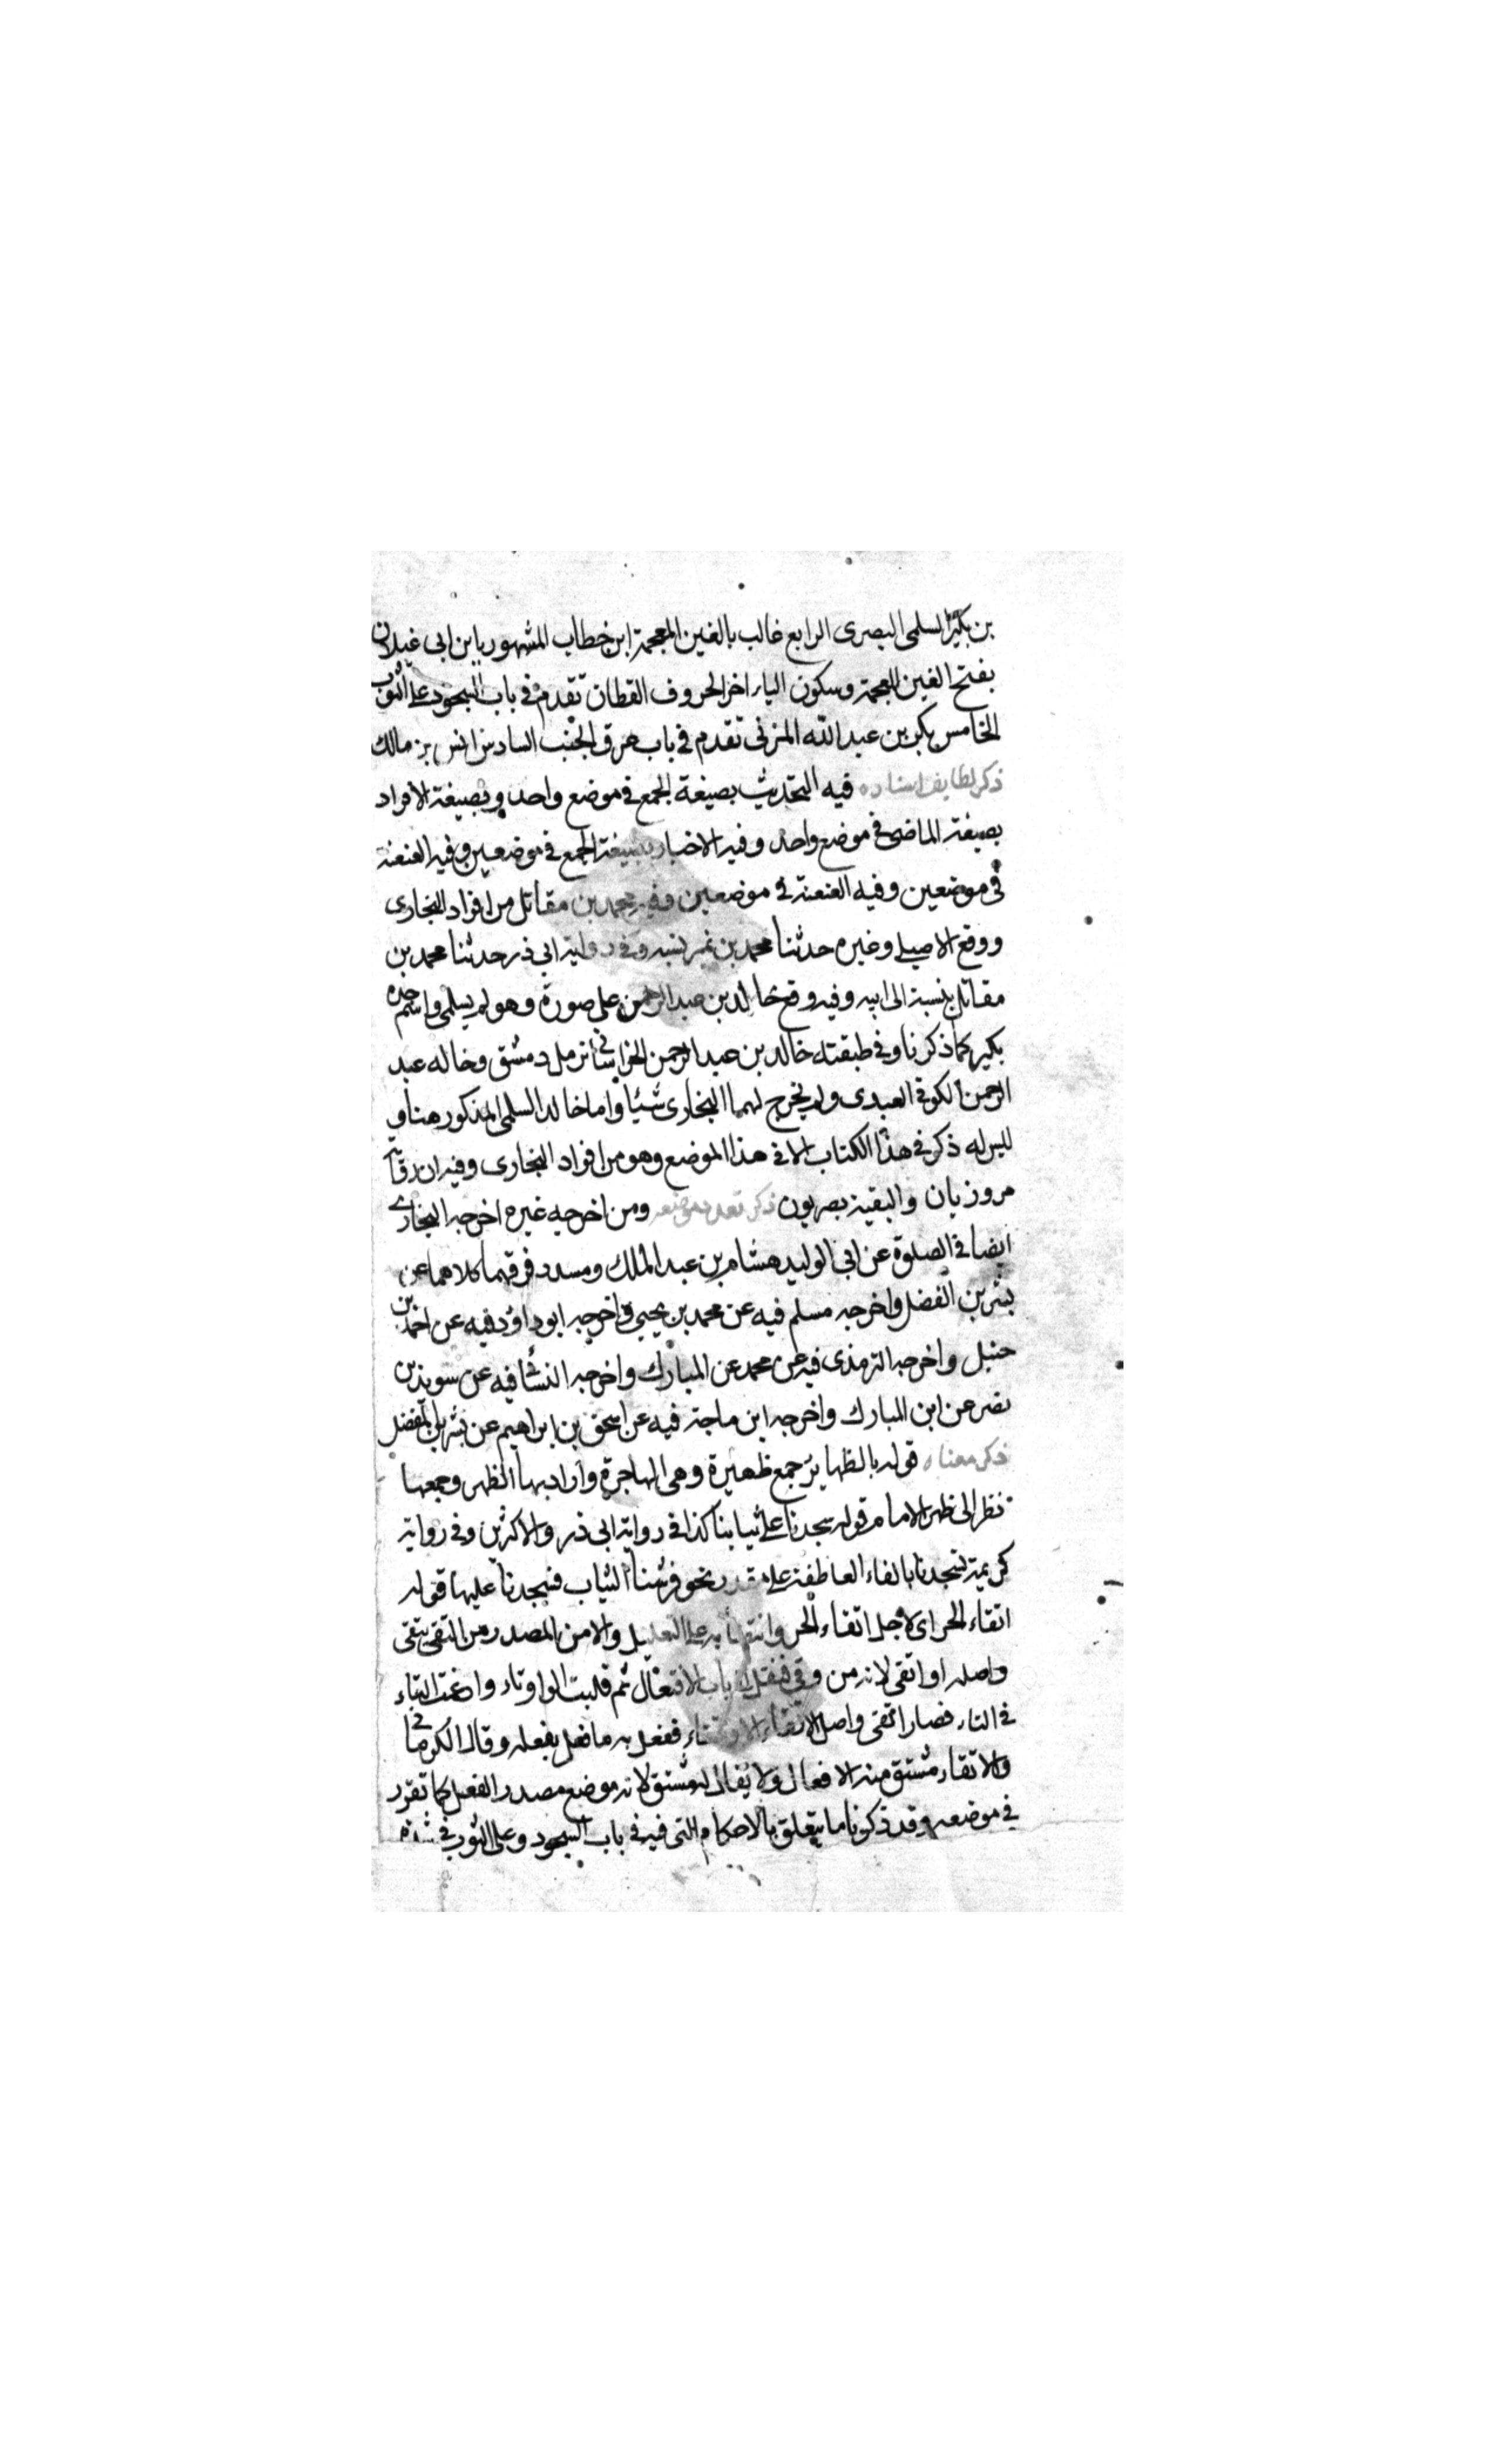 بن بكير السلمى البصرى الرابع غالب بالغين المعجمة ابن خطاب المشهور بابن ابى غيلان
بفتح الغين المعجمة وسكون الياء اخر الحروف القطان تقدم فى باب السجود على الثوب
الخامس بكر بن عبد الله المزنى تقدم فى باب عرق الجنب السادس انس بن مالك
ذكر لطايف اسناده فيه التحديث بصيغة الجمع فى موضع واحد وبصيغة الافراد
بصيغة الماضى فى موضع واحد وفيه الاخبار بصيغة الجمع فى موضعين وفيه العنعنة
فى موضعين وفيه العنعنة فى موضعين وفيه محمد بن مقاتل من افراد البخارى
ووقع الاصيلى وغيره حدثنا محمد بن غير نسبه وفى رواية ابى ذر حدثنا محمد بن
مقاتل بنسبة الى ابيه وفيه وقع خالد بن عبد الرحمن على صورة وهو لم يسلمى واسم جده
بكير كما ذكرنا وفى طبقته خالد بن عبد الرحمن الخراسانى نزمل دمشق وخاله عبد
الرحمن الكوفى العبدى ولم يخرج لهما البخارى شيئا واما خالد السلمى المذكور هنا و
ليس له ذكر فى هذا الكتاب الا فى هذا الموضع وهو من افراد البخارى وفيه ان رواته
مروزيان والبقية بصريون ذكر تعدد موضعه ومن اخرجه غيره اخرجه البخارى
ايضا فى الصلوة عن ابى الوليد هشام بن عبد الملك ومسدد فرقهما كلاهما عن
بشر بن الفضل واخرجه مسلم فيه عن محمد بن يحيى واخرجه ابو داود فيه عن احمد بن
حنبل واخرجه الترمذى فيه عن محمد عن المبارك واخرجه النسائى فيه عن سويد بن
نصر عن ابن المبارك واخرجه ابن ماجة فيه عن اسحق بن ابراهيم عن بشر بن المفضل
ذكر معناه قوله بالظهاير جمع ظهيرة وهى الهاجرة واراد بها الظهر وجمعها
نظر الى ظهر الامام قوله سجدنا على ثيابنا كذا فى رواية ابى ذر والاكثرين وفى رواية
كريمة فسجدنا بالفاء العاطفة على مقدر نحو فرشنا الثياب فسجدنا عليها قوله
اتقاء الحر اى لاجل اتقاء الحر وانتصابه على التعليل والامن المصدر من التقى يتقى
واصله اوتقى لانه من وقى فنقل الى باب الافتعال ثم قلبت الواو تاء وادغمت التاء
فى التاء فصار اتقى واصل الاتقاء الاوتقاء ففعل به ما فعل بفعله وقال الكرمانى
والاتقاء مشتق منه الافعال ولا يقال له مشتق لانه موضع مصدر الفعل كما تقرر
فى موضعه وقد ذكرنا ما يتعلق بالاحكام التى فيه فى باب السجود وعلى الثوب فى شدة